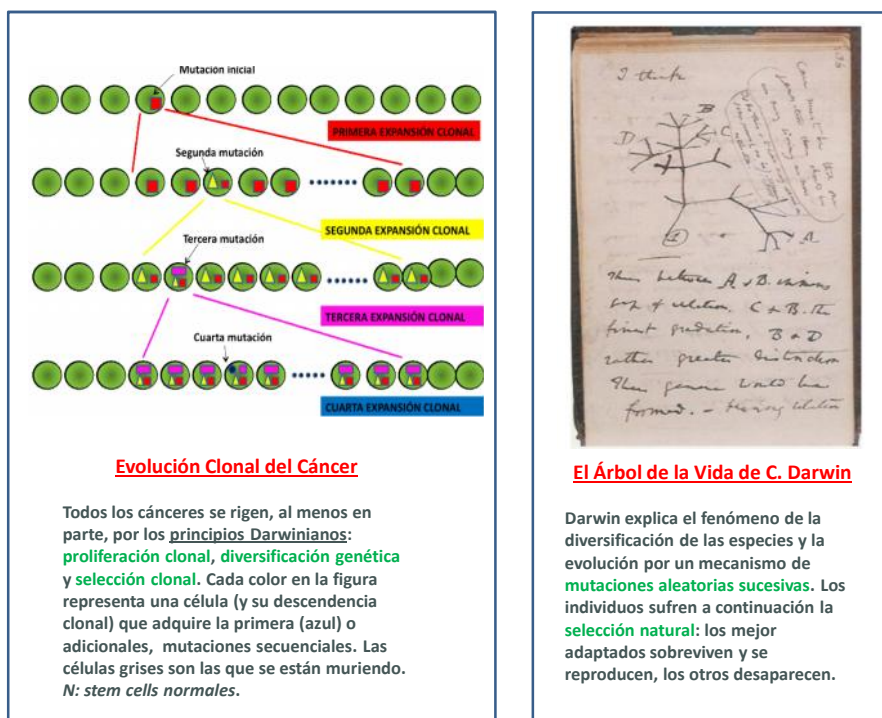 Mutación inicial
PRIMERA EXPANSIÓN CLONAL
Segunda mutación
SEGUNDA EXPANSIÓN CLONAL
Tercera mutación
TERCERA EXPANSIÓN CLONAL
Cuarta mutación
CUARTA EXPANSIÓN CLONAL
Evolución Clonal del Cáncer
Todos los cánceres se rigen, al menos en
parte, por los principios Darwinianos:
proliferación clonal, diversificación genética
y selección clonal. Cada color en la figura
representa una célula (y su descendencia
clonal) que adquiere la primera (azul) o
adicionales, mutaciones secuenciales. Las
células grises son las que se están muriendo.
N: stem cells normales.
I think
B
D
C
A
1
Thus between A & B. immense
gap of relation. C & B. the
finest gradation, B & D
rather greater distinction
Thus genera would be
formed. — bearing relation
El Árbol de la Vida de C. Darwin
Darwin explica el fenómeno de la
diversificación de las especies y la
evolución por un mecanismo de
mutaciones aleatorias sucesivas. Los
individuos sufren a continuación la
selección natural: los mejor
adaptados sobreviven y se
reproducen, los otros desaparecen.